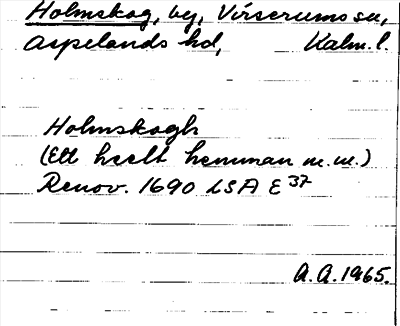 Holmskog, by, Virserums sn,
Aspelands hd, Kalm. l.
Holmskogh
(Ett heelt hemman m.m.)
Renov. 1690 LSA E 37
A.A. 1965.